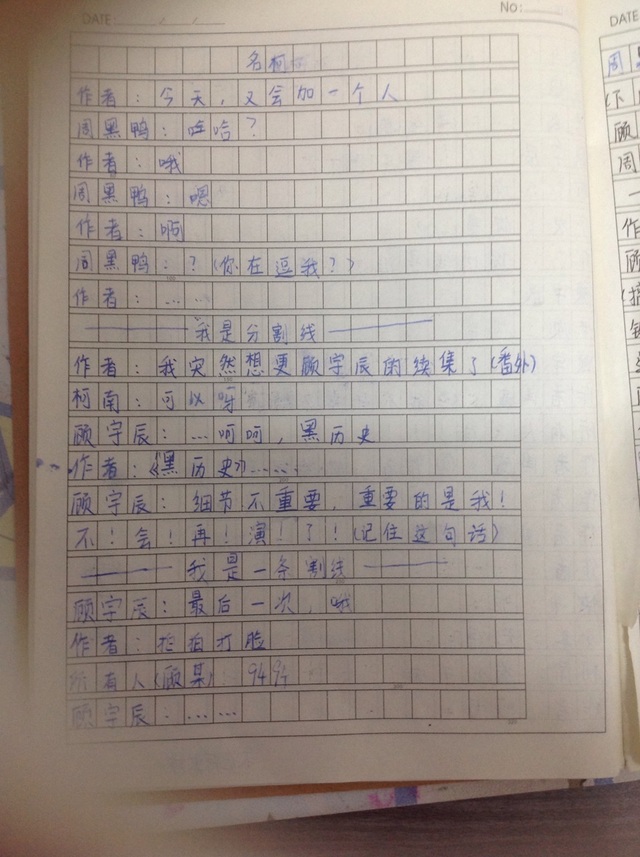 DATE: / /
No:
名柯
作者:今天,又会加一个人
周黑鸭:哈哈?
作者:哦
周黑鸭:嗯
作者:啊
周黑鸭:?(你在逗我?)
作者:……
我是分割线
作者:我突然想更顾宇辰的续集了(番外)
柯南:可以呀
顾宇辰:…呵呵,黑历史
作者:《黑历史》……
顾宇辰:细节不重要,重要的是我!
不!会!再!演!了!(记住这句话)
我是一条割线
顾宇辰:最后一次,哦
作者:拍拍打脸
所有人(顾某) 9494
顾宇辰:……
周
顾
周
作
顾